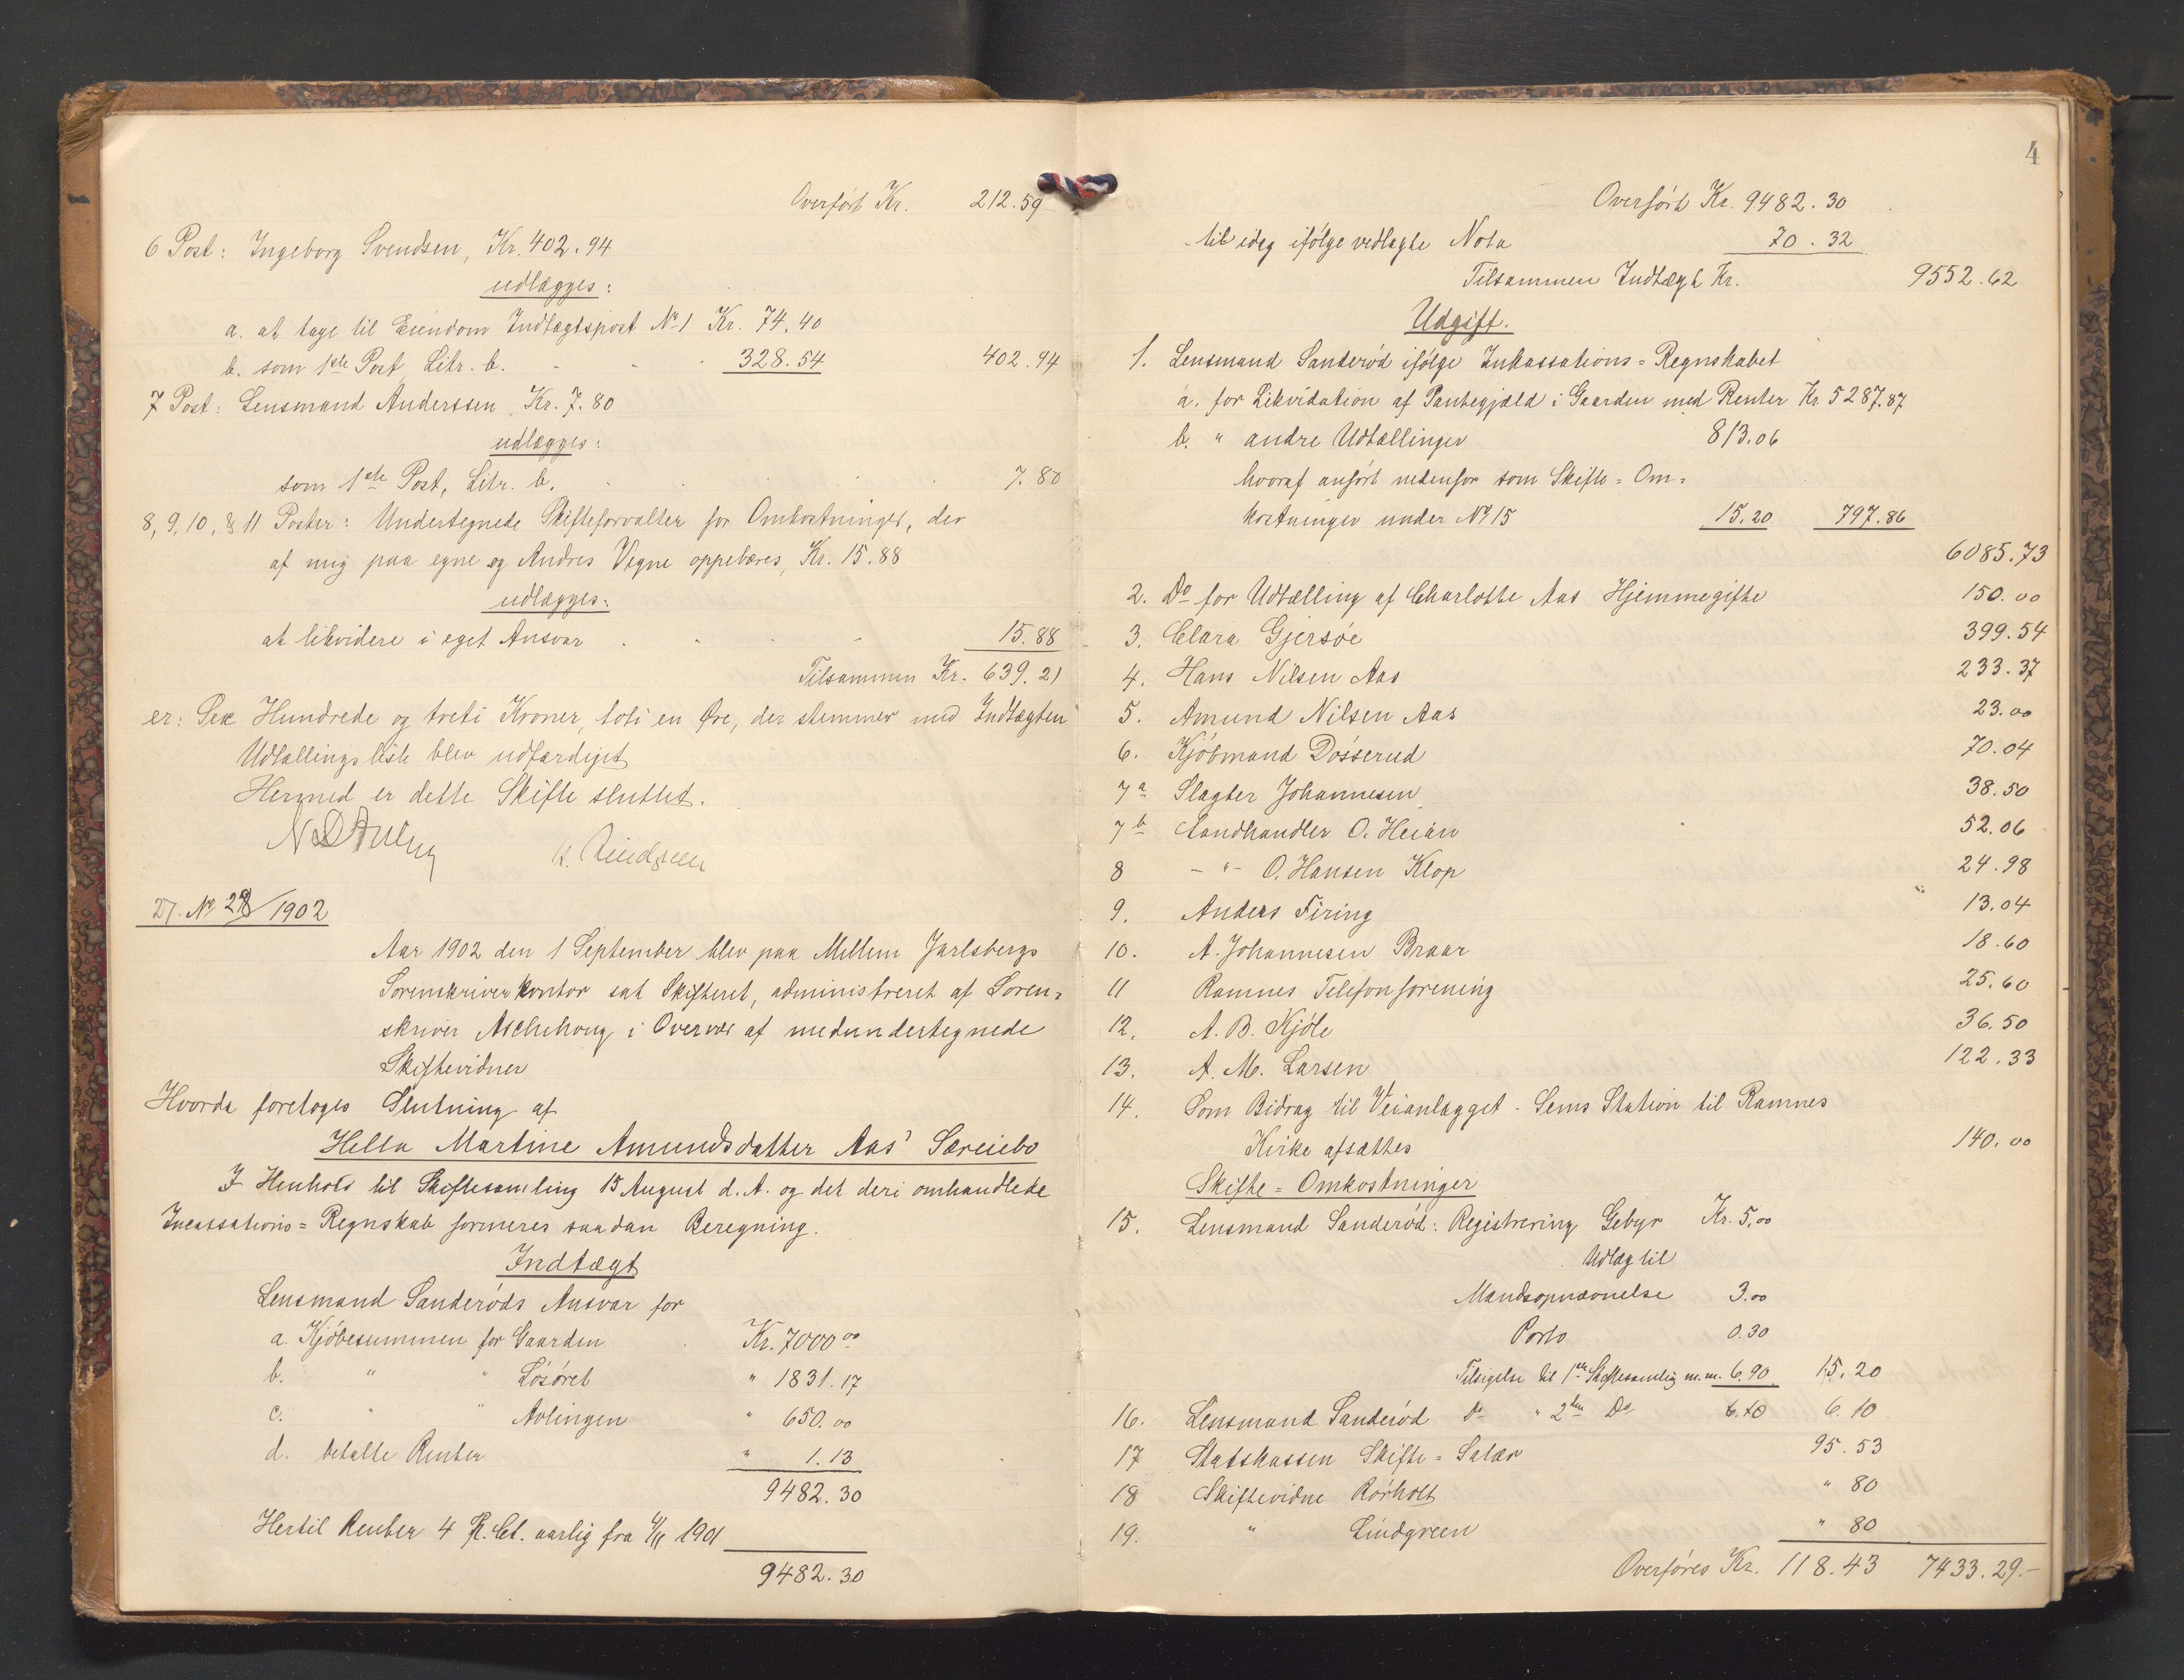 Overført Kr. 212.59
6 Post: Ingeborg Svendsen, Kr. 402.94
udlægges:
a. at tage til Eiendom Indtægtspost No 1 Kr. 74.40
b. som 1ste Post Litr. b. 328.54 402.94
7 Post: Lensmand Anderssen, Kr. 7.80
udlægges:
som 1ste Post, Litr. b. 7.80
8, 9, 10, & 11 Poster: Undertegnede Skifteforvalter for Omkostninger, der
af mig paa egne og Andres Vegne oppebæres, Kr. 15.88
udlægges:
at likvidere i eget Ansvar 15.88
Tilsammen Kr. 639.21
er: Sex Hundrede og treti Kroner, toti en Øre, der stemmer med Indtægten
Udtællingsliste blev udfærdiget
Hermed er dette Skifte sluttet.
27. No 28/1902
Aar 1902 den 1 September blev paa Mellem Jarlsbergs
Sorenskriverkontor sat Skifteret, administreret af Soren=
skriver Aschehoug i Overvær af medundertegnede
Skiftevidner
Hvorda foretoges Slutning af
Hella Martine Amundsdatter Aas' Særeiebo
I Henhold til Skiftesamling 15 August d. A. og det deri omhandlede
Incassations=Regnskab formeres saadan Beregning.
Indtægt
Lensmand Sanderøds Ansvar for
a. Kjøbesummen for Gaarden Kr. 7000 00
b. " " Løsøret " 1831.17
c. " " Avlingen " 650.00
d. betalte Renter " 1.13
9482.30
Hertil Renter 4 Pr. Ct. aarlig fra 1901
9482.30
4
Overført Kr. 9482.30
til idag ifølge vedlagte Nota 70.32
Tilsammen Indtægt Kr. 9552.62
Udgift.
1. Lensmand Sanderød ifølge Inkassations=Regnskabet
a. for Likvidation af Pantegjæld i Gaarden med Renter Kr. 5287.87
b. " andre Udtællinger 813.06
hvoraf anført nedenfor som Skifte=Om=
kostninger under No 15 15.20 797.86
6085.73
2. Do for Udtælling af Charlotte Aas Hjemmegifte 150.00
3. Clara Gjersøe 399.54
4. Hans Nilsen Aas 233.37
5. Amund Nilsen Aas 23.00
6. Kjøbmand Døsserud 70.04
7a Slagter Johannesen 38.50
7b Landhandler O. Heian 52.06
8 - " - O. Hansen Klop 24.98
9. Anders Firing 13.04
10. A. Johannesen Braar 18.60
11 Ramnes Telefonforening 25.60
12. A. B. Kjøle 36.50
13. A. M. Larsen 122.33
14. Som Bidrag til Veianlægget - Sems Station til Ramnes
Kirke afsættes 140.00
Skifte=Omkostninger
15. Lensmand Sanderød: Registrering Gebyr Kr. 5.00
Udlæg til
Mandsopnævnelse 3.00
Porto 0.30
Tilsigelse til 1ste Skiftesamling m.m. 6.90 15.20
16. Lensmand Sanderød Do " 2den Do 6.10 6.10
17 Statskassen Skifte=Salær 95.53
18 Skiftevidne Rørholt " 80
19. " Lindgreen " 80
Overføres Kr. 118.43 7433.29.-